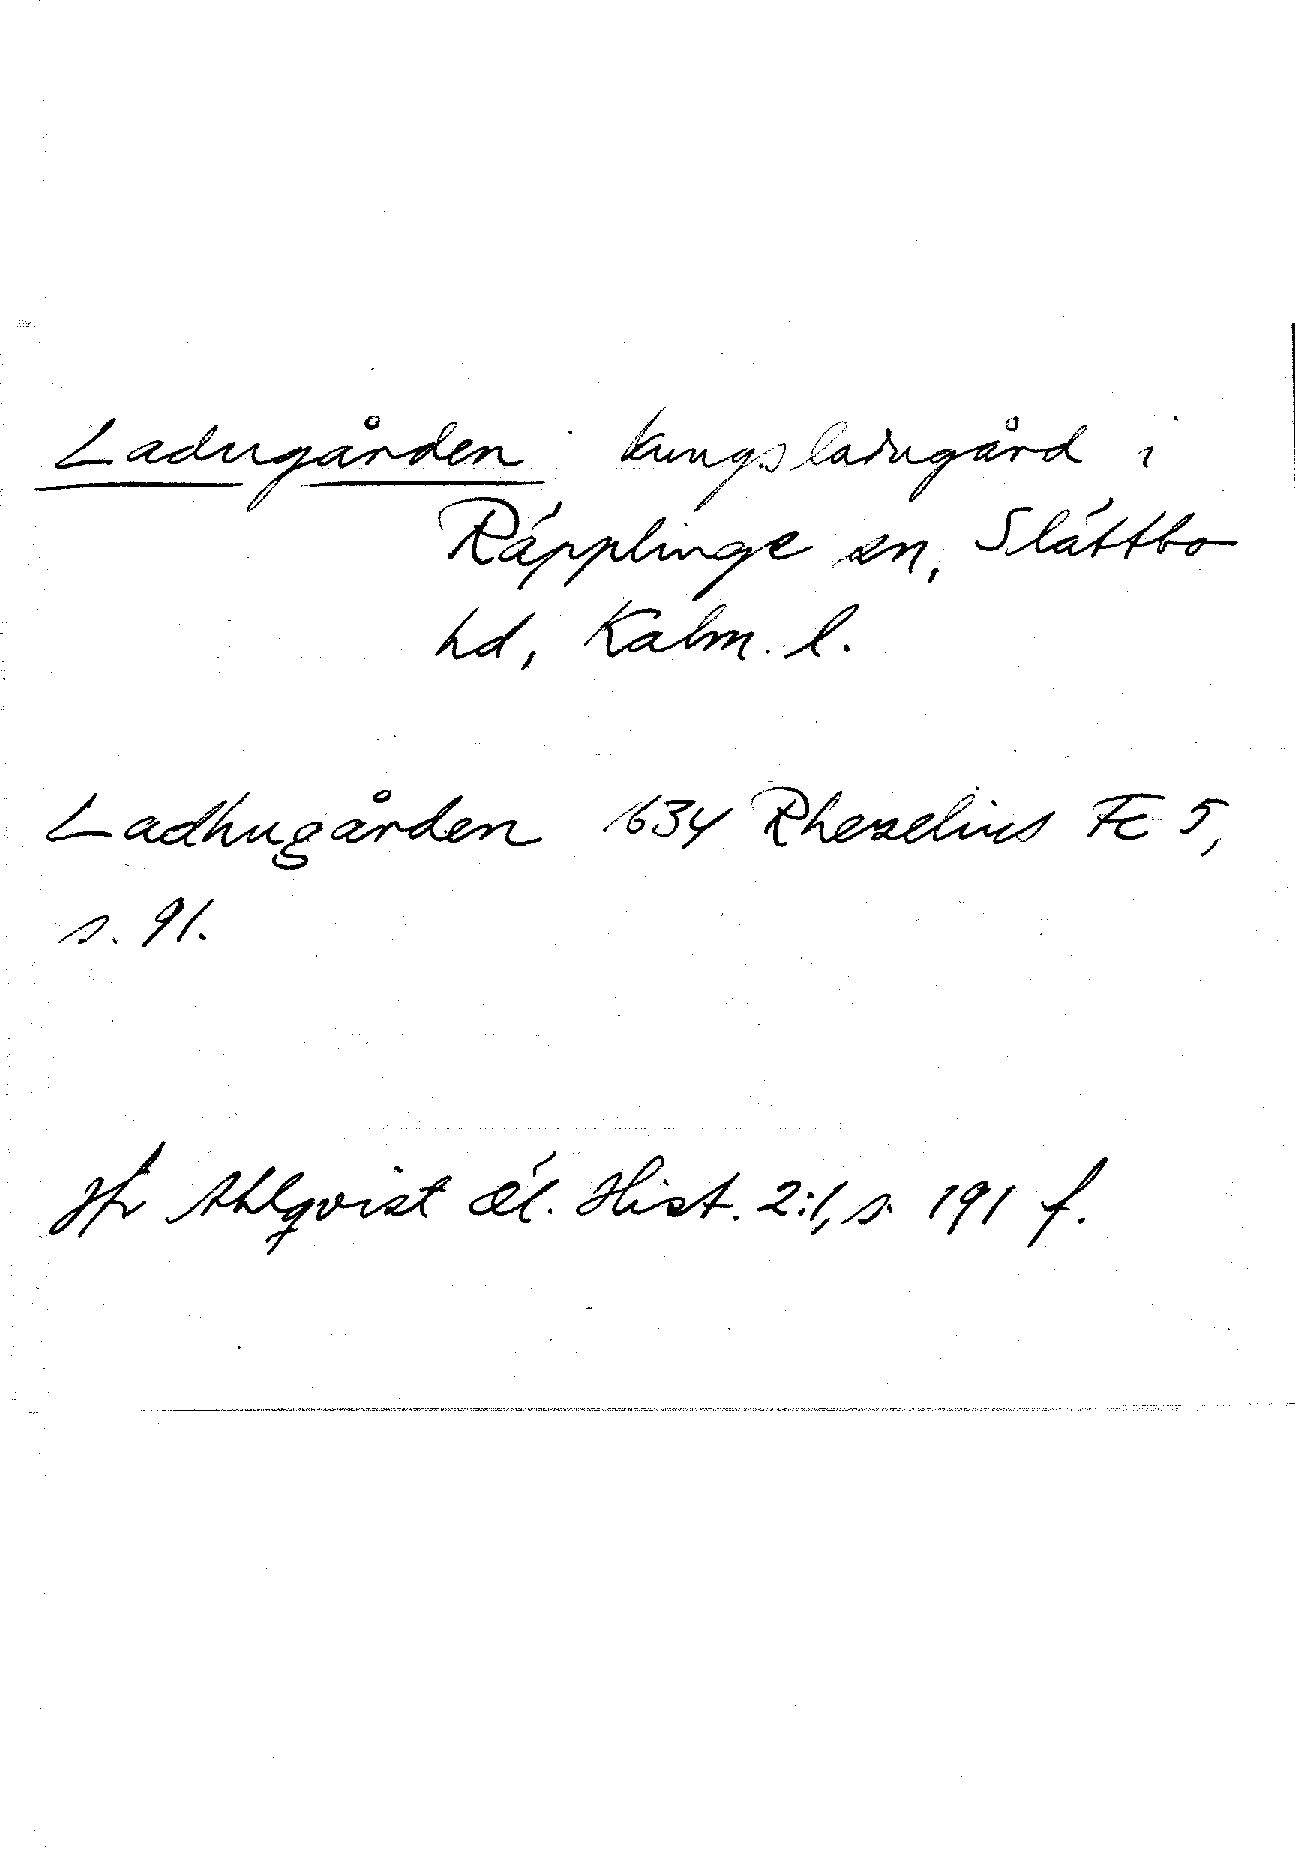 Ladugården kungsladugård i
Räpplinge sn, Slättbo
hd, Kalm. l.
Ladhugården 1634 Rhezelius Fc 5,
s. 91.
Jfr Ahlqvist Öl. Hist. 2:1, s. 191 f.